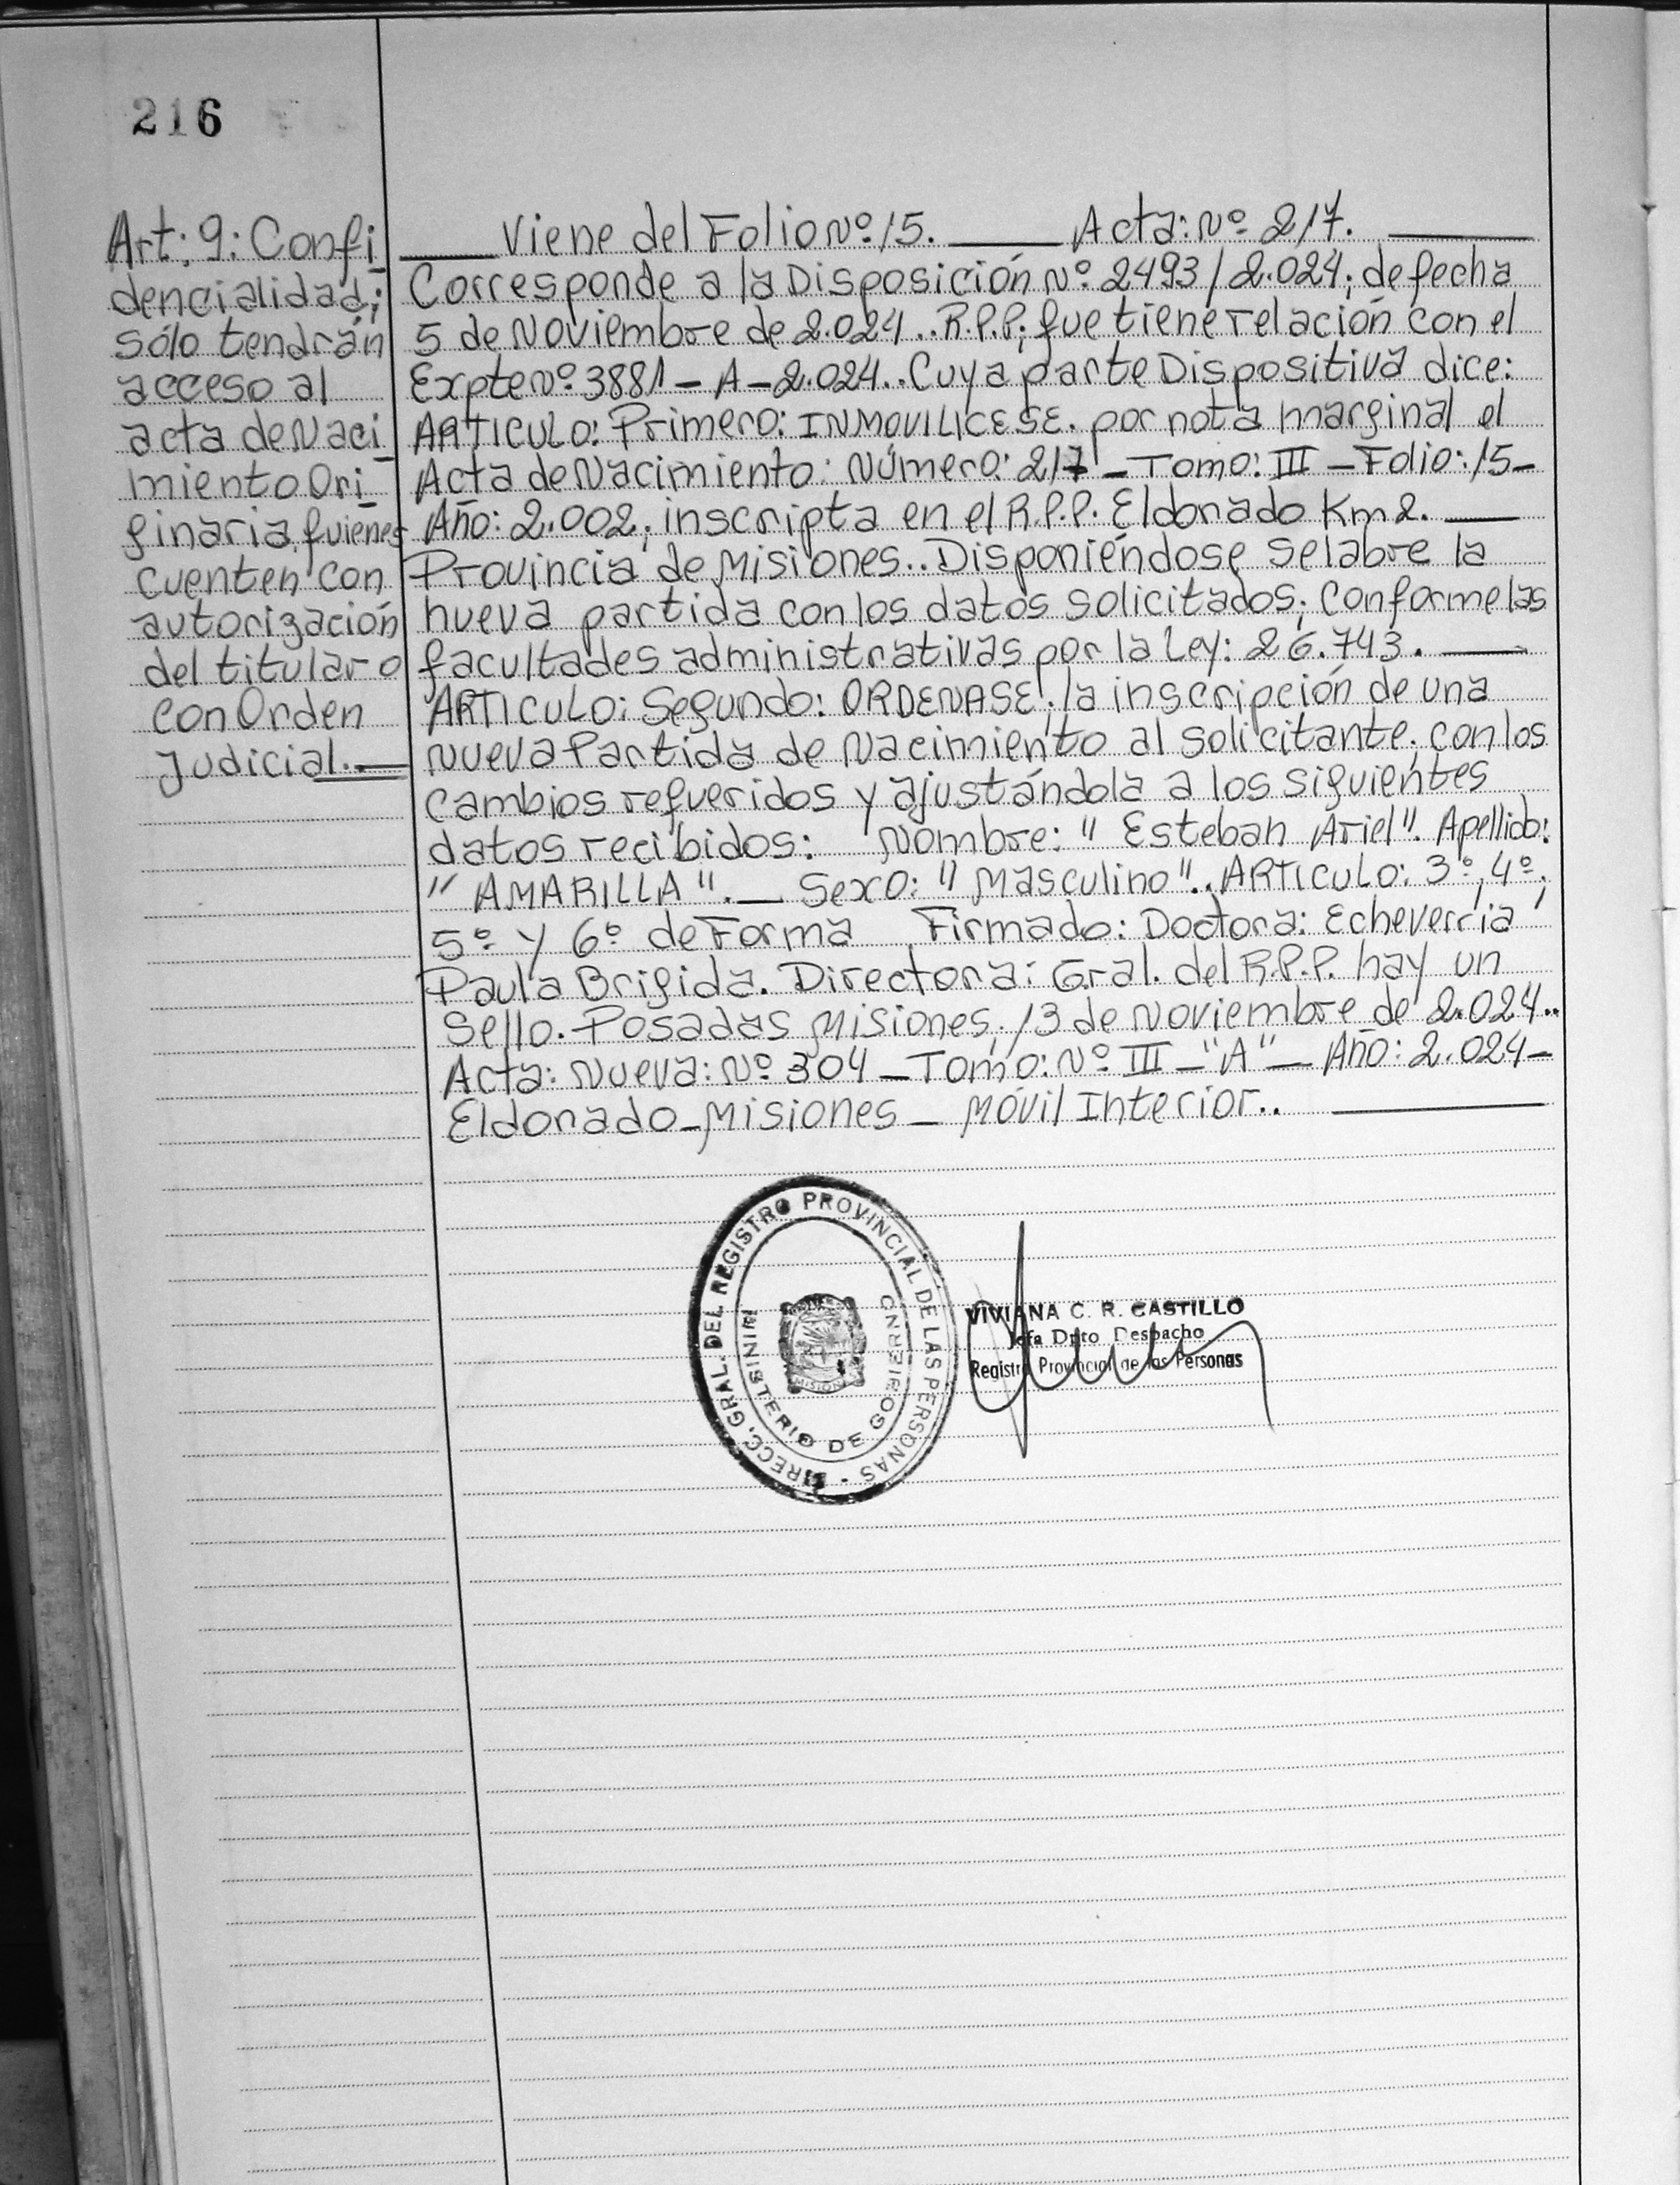 216
Art: 9: Confi_
dencialidad;
sólo tendrán
acceso al
acta de Naci_
miento Ori_
ginaria, quienes
cuenten con
autorización
del titular o
con Orden
Judicial.._
___ Viene del Folio Nº 15. ___ Acta: Nº 217. ___
Corresponde a la Disposición Nº 2493/2.024; de fecha
5 de Noviembre de 2.024.. R.P.P; que tiene relación con el
Expte Nº 3881 _ A _ 2.024.. Cuya parte Dispositiva dice:
ARTICULO: Primero: INMOVILICESE. por nota marginal el
Acta de Nacimiento: Número: 217 _ Tomo: III _ Folio: 15 _
Año: 2.002; inscripta en el R.P.P. Eldorado Km 2. ___
Provincia de Misiones.. Disponiéndose se labre la
nueva partida con los datos solicitados; Conforme las
facultades administrativas por la Ley: 26.743. ___
ARTICULO: Segundo: ORDENASE; la inscripción de una
Nueva Partida de Nacimiento al solicitante; con los
cambios requeridos y ajustándola a los siguientes
datos recibidos: Nombre: "Esteban Ariel". Apellido:
"AMARILLA". _ Sexo: "Masculino".. ARTICULO: 3º, 4º,
5º y 6º de Forma Firmado: Doctora: Echeverria
Paula Brigida. Directora: Gral. del R.P.P. hay un
Sello. Posadas Misiones, 13 de Noviembre de 2.024..
Acta: Nueva: Nº 304 _ Tomo: Nº III _ "A" _ Año: 2.024 _
Eldorado _ Misiones _ Móvil Interior.. ___
DIRECC. GRAL. DEL REGISTRO PROVINCIAL DE LAS PERSONAS -
MINISTERIO DE GOBIERNO
MISIONES
VIVIANA C. R. CASTILLO
Jefa Dpto Despacho
Registro Provincial de las Personas